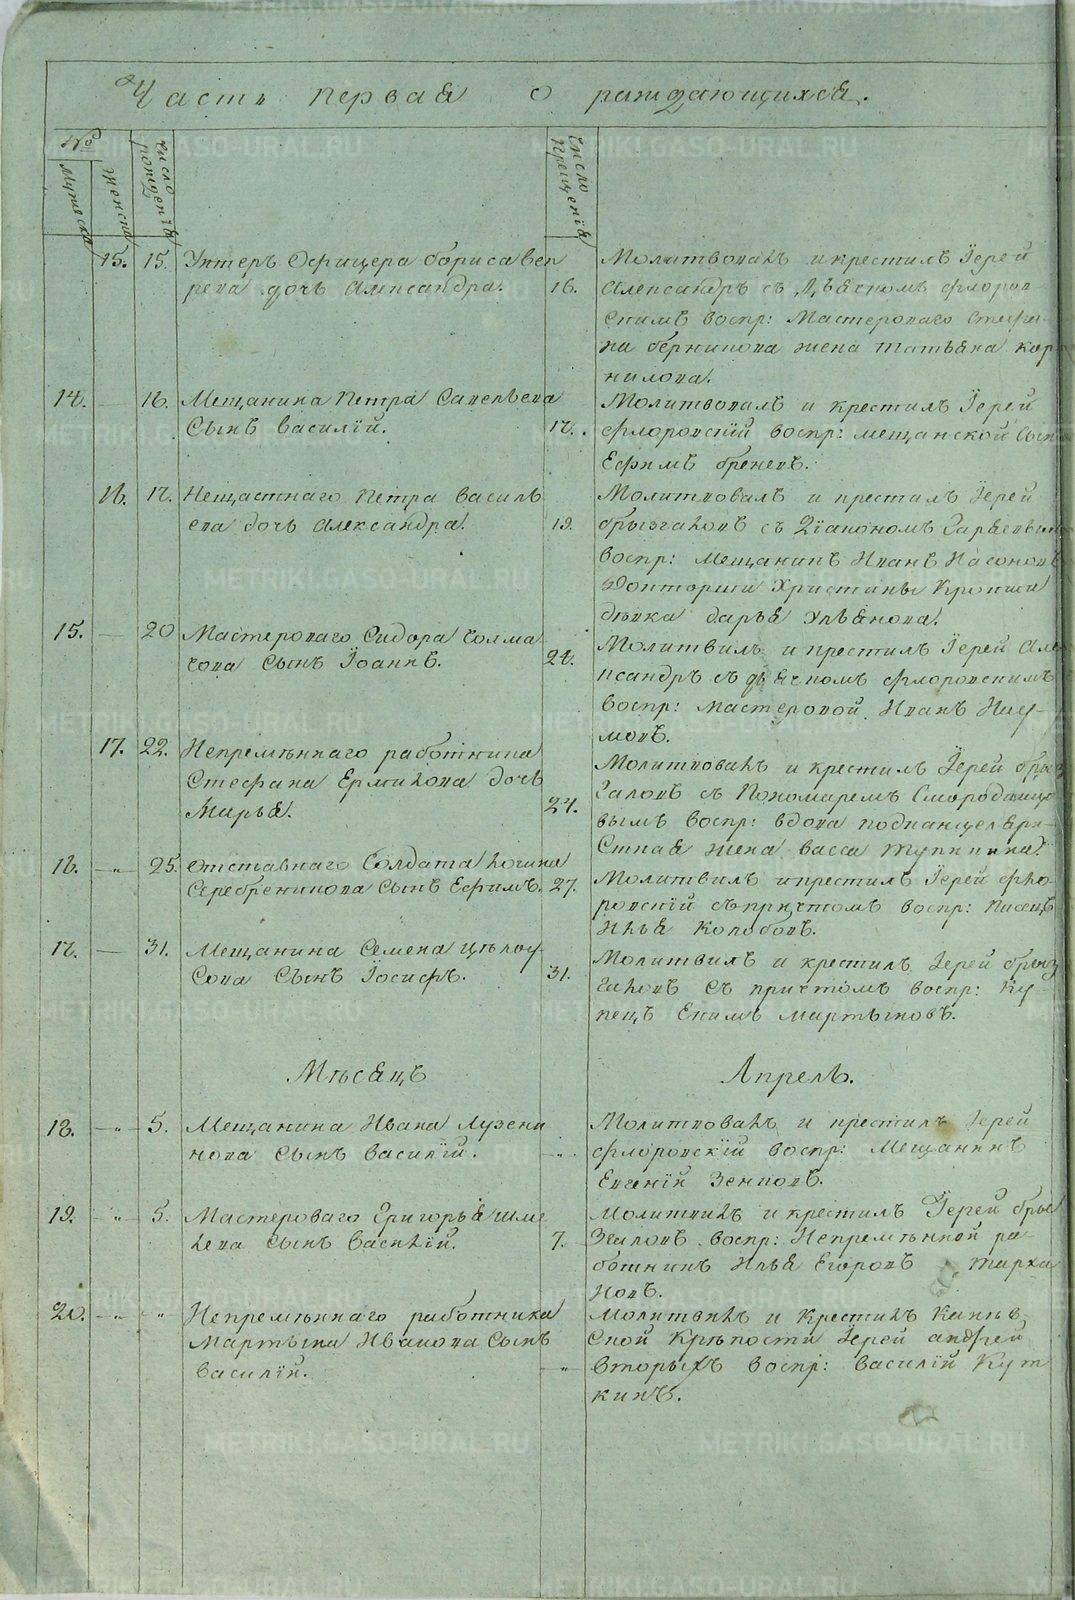 Часть первая о раждающихся.
№
Мужеска
Женска
Число рожденія
Число Крещенія
15. 15. Унтеръ Офицера бориса Вер
рева дочь Александра.
16.
Молитвовалъ и крестилъ Іерей
Александръ съ дьячкомъ Флоров
скимъ воспр: Мастероваго Стефа-
на жена татьяна Кор
нилова.
14. — 16. Мещанина Петра Савельева
Сынъ Василій.
17.
Молитвовалъ и крестилъ Іерей
Флоровскій воспр: мещанской Сынъ
Ефимъ бреневъ.
16. 17. Нещастнаго Петра Василь
ева дочь Александра.
19.
Молитвовалъ и крестилъ Іерей
брызгаловъ съ Діакономъ
воспр: Мещанинъ Иванъ Насоновъ
Докторши Христины
дѣвка дарья Ульянова.
15. — 20 Мастероваго Сидора Колма
кова Сынъ Іоаннъ.
24.
Молитвилъ и крестилъ Іерей Але
ксандръ съ дьячкомъ Флоровскимъ
воспр: мастеровой Иванъ Нау-
мовъ.
17. 22. Непремѣннаго работника
Стефана Ермилова дочь
Марья.
24.
Молитвовалъ и крестилъ Іерей брыз
галовъ съ Пономаремъ Смородинце
вымъ воспр: вдова подканцеляри-
стская жена васса
16. — „ — 25. Отставнаго Солдата Логина
Серебренникова Сынъ Ефимъ.
27.
Молитвилъ и крестилъ Іерей Фло
ровскій съ причтомъ воспр: Писецъ
Илья Колобовъ.
17. — 31. Мещанина Семена Цѣлоу-
сова Сынъ Іосифъ.
31.
Молитвилъ и крестилъ Іерей брыз
галовъ съ притомъ воспр: Ку-
пецъ Екимъ Мартыновъ.
Мѣсяцъ Апрель.
18. — „ — 5. Мещанина Ивана Лузени
нова Сынъ Василій.
„
Молитвовалъ и крестилъ Іерей
Флоровскій воспр: Мещанинъ
Евгеній Зенковъ.
19. — „ — 5. Мастероваго Григорья Шме
лева Сынъ Василій.
7.
Молитвилъ и крестилъ Іерей бры
згаловъ воспр: Непремѣнной ра-
ботникъ Илья Егоровъ Тарха
новъ.
20. — „ — „ Непремѣннаго работника
Мартына Иванова Сынъ
Василій.
„
Молитвилъ и Крестилъ
Ской Крѣпости Іерей андрей
Вторыхъ воспр: Василій Кут
кинъ.
METRIKI.GASO-URAL.RU